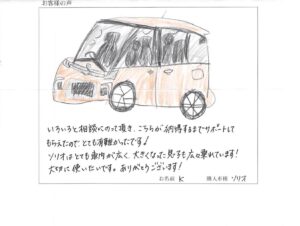 お客様の声
いろいろと相談にのって頂き、こちらが納得するまでサポートして
もらえたので とても有難かったです♩
ソリオはとても車内が広く、大きくなった息子も広々乗れています!
大切に使いたいです。ありがとうございます!
お名前 K 購入車種 ソリオ